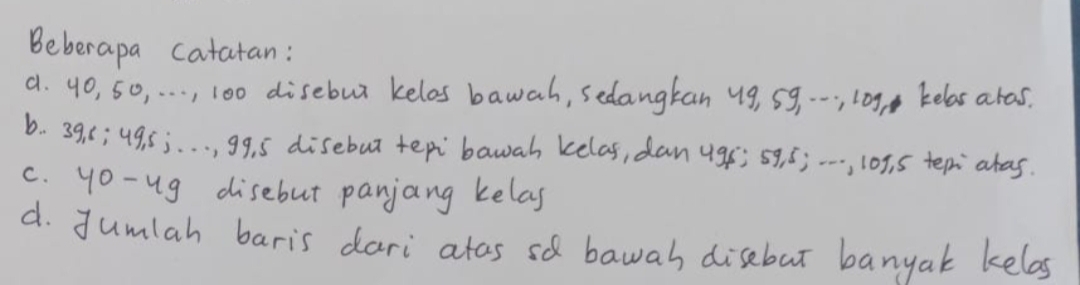 Beberapa Catatan:
a. 40, 50, ..., 100 disebut kelas bawah, sedangkan 49, 59, ..., 109, kelas atas.
b. 39,5; 49,5; ..., 99,5 disebut tepi bawah kelas, dan 49,5; 59,5; ..., 109,5 tepi atas.
c. 40-49 disebut panjang kelas
d. Jumlah baris dari atas sd bawah disebut banyak kelas